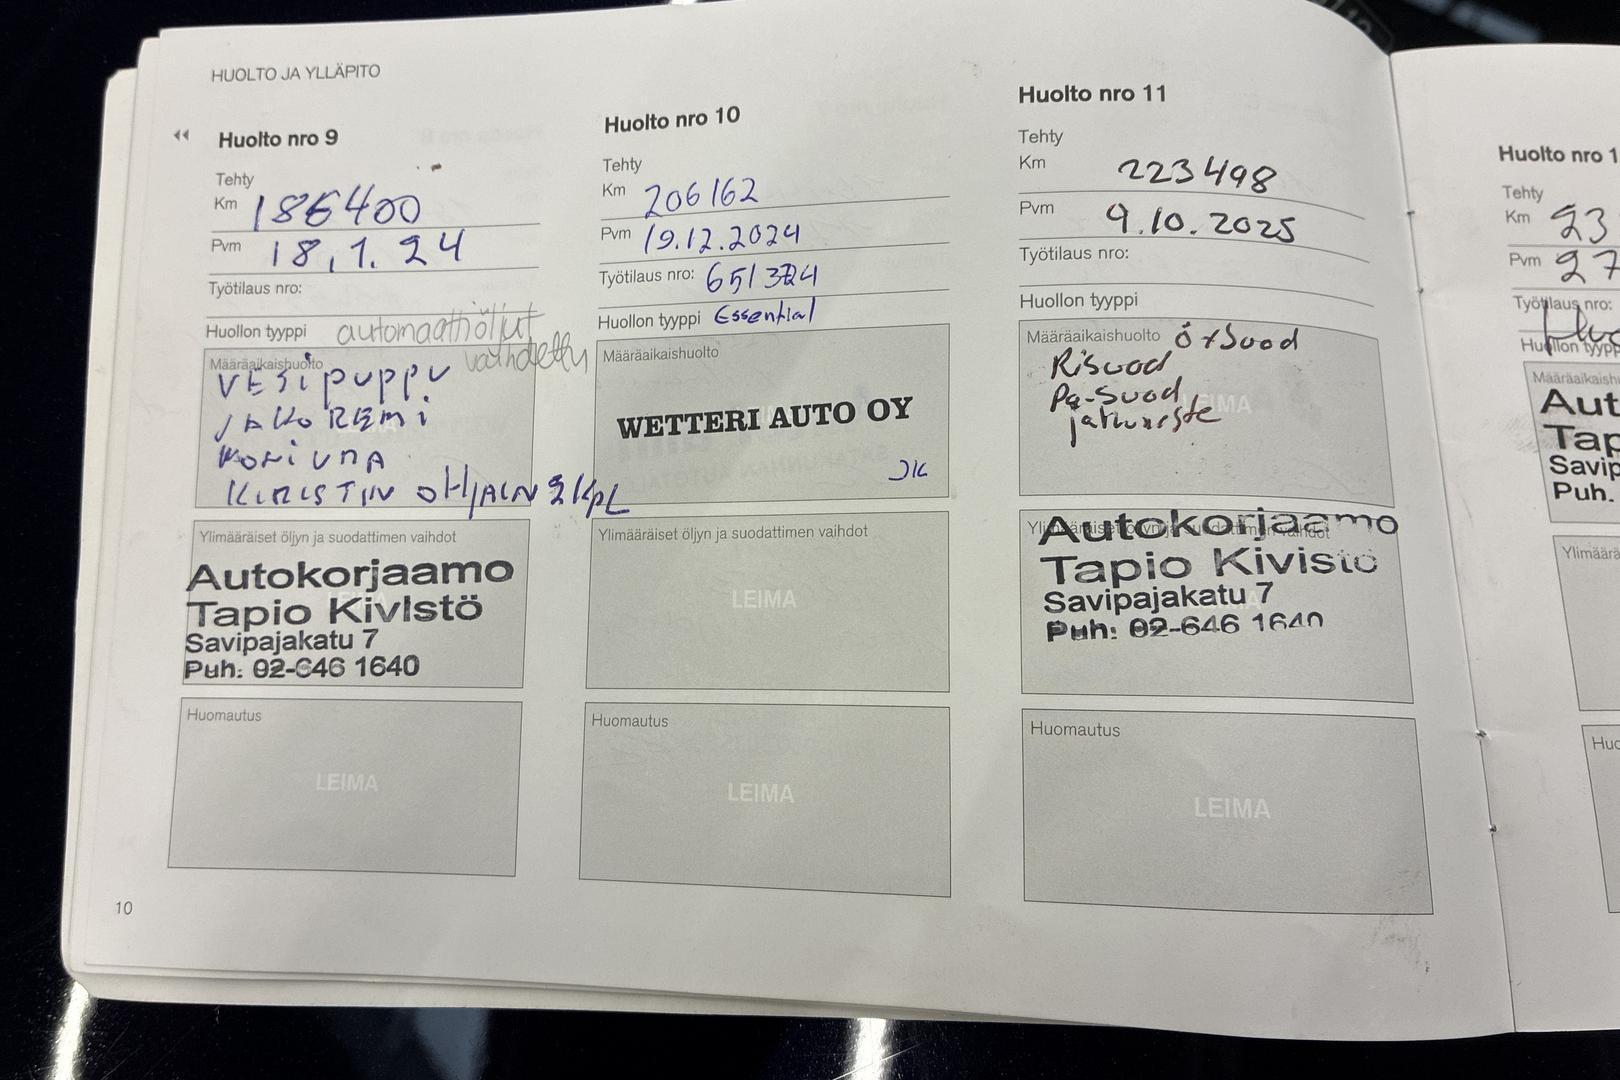 HUOLTO JA YLLÄPITO
Huolto nro 9
Tehty
Km 186400
Pvm 18.1.24
Työtilaus nro:
Huollon tyyppi automaattiöljyt
vaihdettu
Määräaikaishuolto
VESipuppu
JAKOREMi
MONiURA
KIRISTIN OHJAIN 2KPL
Ylimääräiset öljyn ja suodattimen vaihdot
Autokorjaamo
Tapio Kivistö
Savipajakatu 7
Puh: 02-646 1640
Huomautus
LEIMA
10
Huolto nro 10
Tehty
Km 206162
Pvm 19.12.2024
Työtilaus nro: 651324
Huollon tyyppi Essential
Määräaikaishuolto
WETTERI AUTO OY
JK
Ylimääräiset öljyn ja suodattimen vaihdot
LEIMA
Huomautus
LEIMA
Huolto nro 11
Tehty
Km 223498
Pvm 9.10.2025
Työtilaus nro:
Huollon tyyppi
Määräaikaishuolto Ö+Suod
Risuod
Pa-Suod
LEIMA
Ylimääräiset öljyn ja suodattimen vaihdot
Autokorjaamo
Tapio Kivistö
Savipajakatu 7
Puh: 02-646 1640
Huomautus
LEIMA
Huolto nro 1
Tehty
Km 23
Pvm 27
Työtilaus nro:
Huollon tyypp
Määräaikaish
Aut
Tap
Savip
Puh.
Ylimäärä
Huo